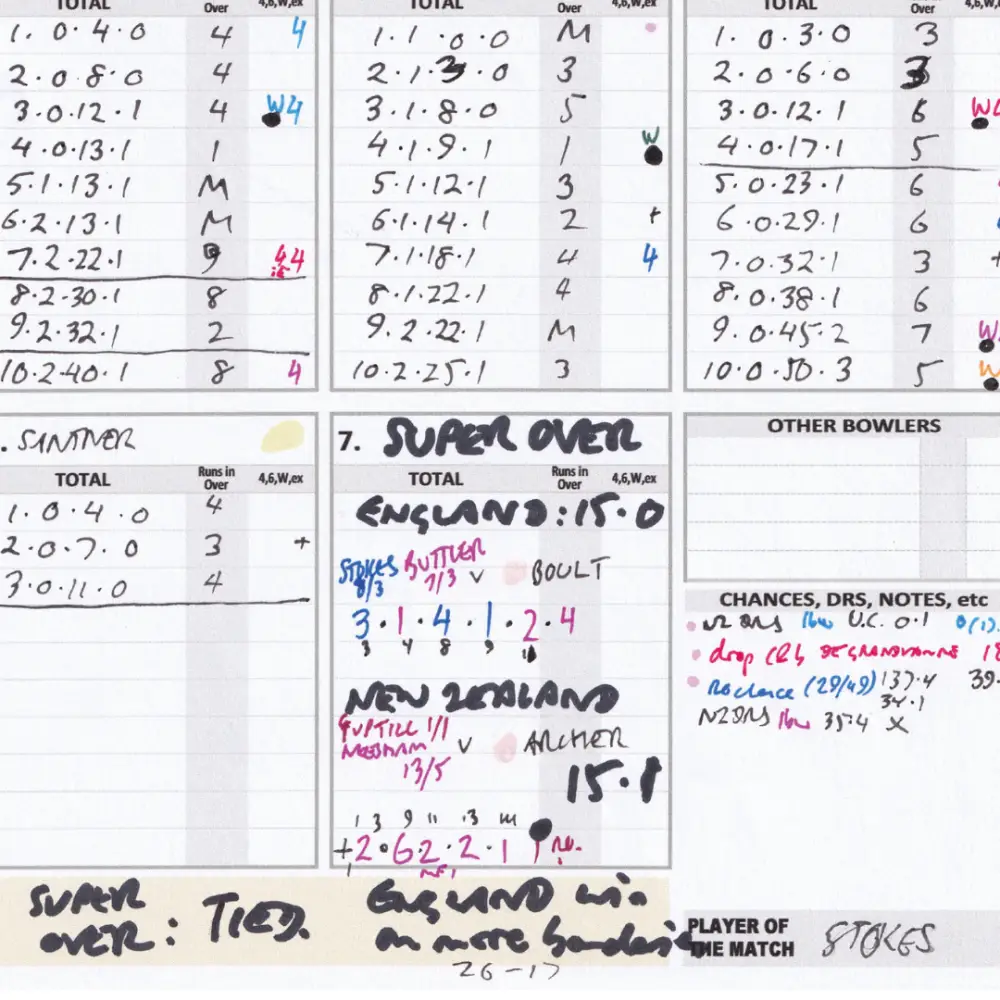 TOTAL Over 4,6,W,ex
1. 0. 4. 0 4 4
2. 0 8. 0 4
3. 0. 12. 1 4 W4
4. 0. 13. 1 1
5. 1. 13. 1 M
6. 2. 13. 1 M
7. 2. 22. 1 9 44
8. 2. 30. 1 8
9. 2. 32. 1 2
10. 2. 40. 1 8 4
TOTAL Over 4,6,W,ex
1. 1. 0. 0 M
2. 1. 3. 0 3
3. 1. 8. 0 5
4. 1. 9. 1 1 W
5. 1. 12. 1 3
6. 1. 14. 1 2 +
7. 1. 18. 1 4 4
8. 1. 22. 1 4
9. 2. 22. 1 M
10. 2. 25. 1 3
TOTAL Over 4,6,W,ex
1. 0. 3. 0 3
2. 0. 6. 0 3
3. 0. 12. 1 6 W
4. 0. 17. 1 5
5. 0. 23. 1 6
6. 0. 29. 1 6
7. 0. 32. 1 3 +
8. 0. 38. 1 6
9. 0. 45. 2 7 W
10. 0. 50. 3 5 W
. SANTNER
TOTAL Runs in Over 4,6,W,ex
1. 0. 4. 0 4
2. 0. 7. 0 3 +
3. 0. 11. 0 4
7. SUPER OVER
TOTAL Runs in Over 4,6,W,ex
ENGLAND: 15.0
STOKES BUTTLER
8/3 7/3 v BOULT
3 . 1 . 4 . 1 . 2 . 4
3 4 8 9
NEW ZEALAND
GUPTILL 1/1
NEESHAM v ARCHER
13/5
15.1
1 3 9 11 13 14
+ 2 . 6 2 . 2 . 1 1 r.o.
OTHER BOWLERS
CHANCES, DRS, NOTES, etc
NZ DRS lbw U.C. 0.1 0(1)
drop c&b DE GRANDHOMME 18
No chance (29/49) 137.4 39
34.1
NZ DRS lbw 35.4 x
SUPER OVER: TIED.
ENGLAND win
on more boundaries
26-17
PLAYER OF THE MATCH STOKES